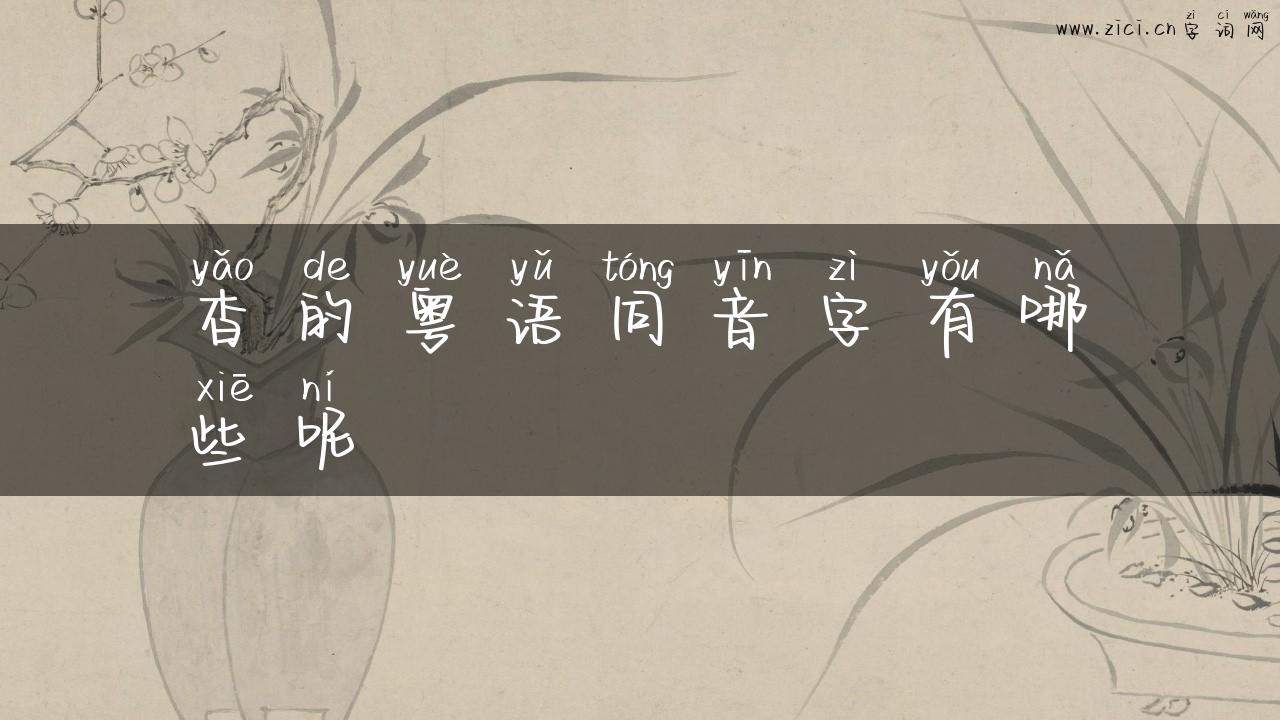 zì cí wǎng
www.zici.cn 字词网
yǎo de yuè yǔ tóng yīn zì yǒu nǎ
杳的粤语同音字有哪
xiē ní
些呢